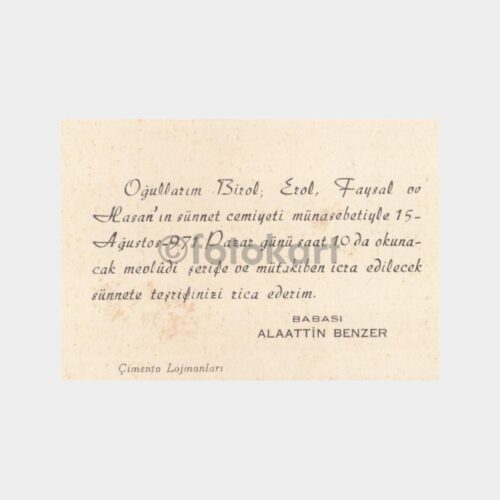 Oğullarım Birol, Erol, Faysal ve
Hasan'ın sünnet cemiyeti münasebetiyle 15-
Ağustos-971 Pazar günü saat 10 da okuna-
cak mevlûdi şerife ve mütakiben icra edilecek
sünnete teşrifinizi rica ederim.
BABASI
ALAATTİN BENZER
Çimento Lojmanları
©fotokart